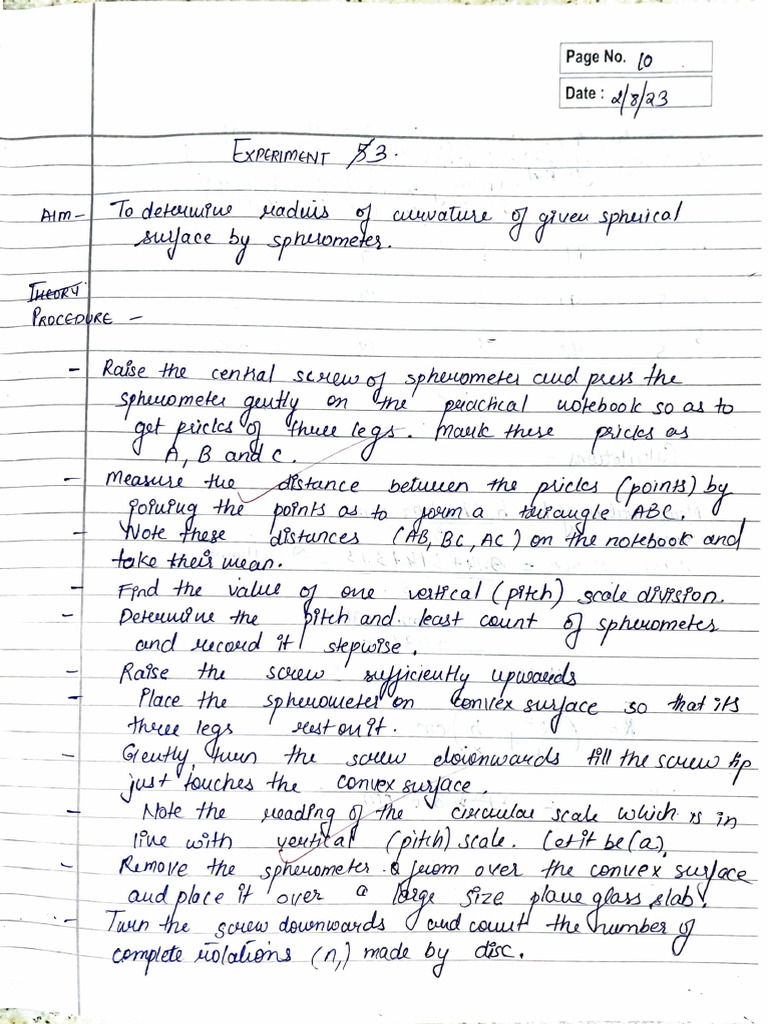 Page No. 10
Date : 2/8/23
EXPERIMENT 3.
AIM - To determine radius of curvature of given spherical
surface by spherometer.
THEORY
PROCEDURE -
- Raise the central screw of spherometer and press the
spherometer gently on the practical notebook so as to
get pricks of three legs. Mark these pricks as
A, B and C.
- Measure the distance between the pricks (points) by
joining the points as to form a triangle ABC.
- Note these distances (AB, BC, AC) on the notebook and
take their mean.
- Find the value of one vertical (pitch) scale division.
- Determine the pitch and least count of spherometer
and record it stepwise.
- Raise the screw sufficiently upwards
- Place the spherometer on convex surface so that its
three legs rest on it.
- Gently, turn the screw downwards till the screw tip
just touches the convex surface.
- Note the reading of the circular scale which is in
line with vertical (pitch) scale. Let it be (a).
- Remove the spherometer from over the convex surface
and place it over a large size plane glass slab.
- Turn the screw downwards and count the number of
complete rotations (n₁) made by disc.